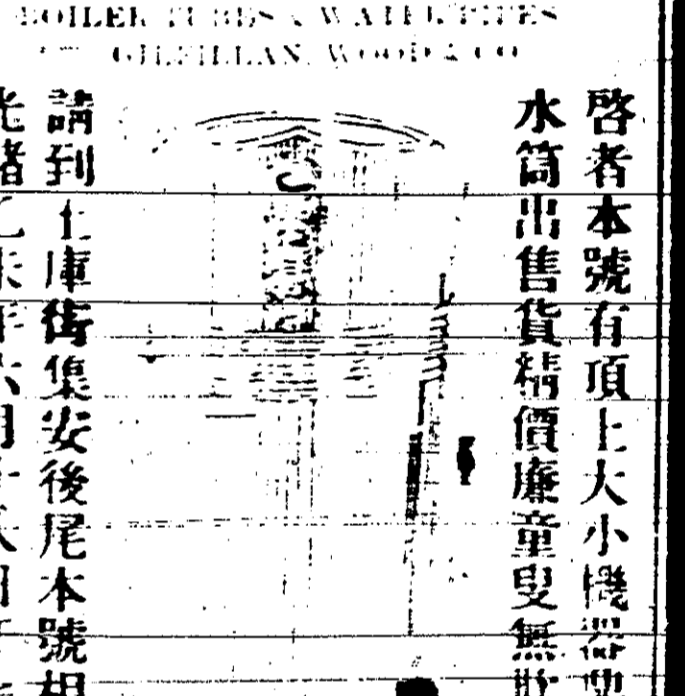 BOILER TUBES & WATER PIPES
GILFILLAN, WOOD & CO
啓者本號有頂上大小機器
水筒出售貨精價廉童叟無
請到土庫街集安後尾本號相
光緒乙未年六月